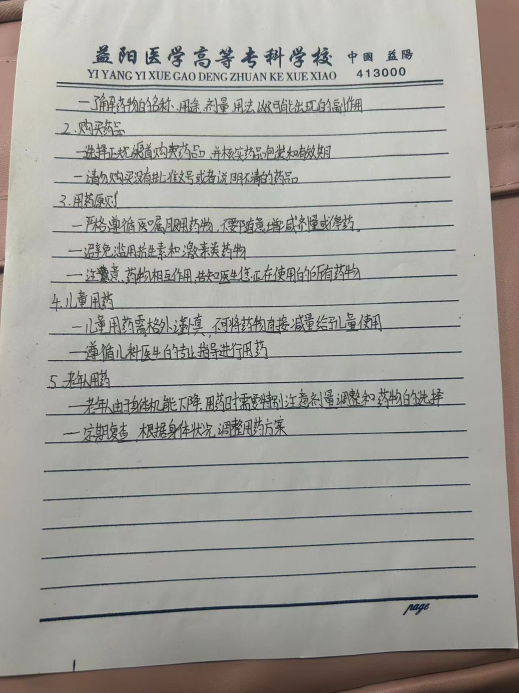 益阳医学高等专科学校 中國 益陽
YI YANG YI XUE GAO DENG ZHUAN KE XUE XIAO 413000
一了解药物的名称、用途、剂量、用法以及可能出现的副作用
2.购买药品
一选择正规渠道购买药品,并核实药品包装和有效期
一请勿购买没有批准文号或者说明不清的药品
3.用药原则
一严格遵循医嘱服用药物,不要随意增减剂量或停药。
一避免滥用抗生素和激素类药物
一注意药物相互作用,告知医生您正在使用的所有药物
4.儿童用药
一儿童用药需格外谨慎,不可将药物直接减量给予儿童使用
一遵循儿科医生的专业指导进行用药
5.老年人用药
一老年人由于身体机能下降,用药时需要特别注意剂量调整和药物的选择
一定期复查,根据身体状况,调整用药方案
page